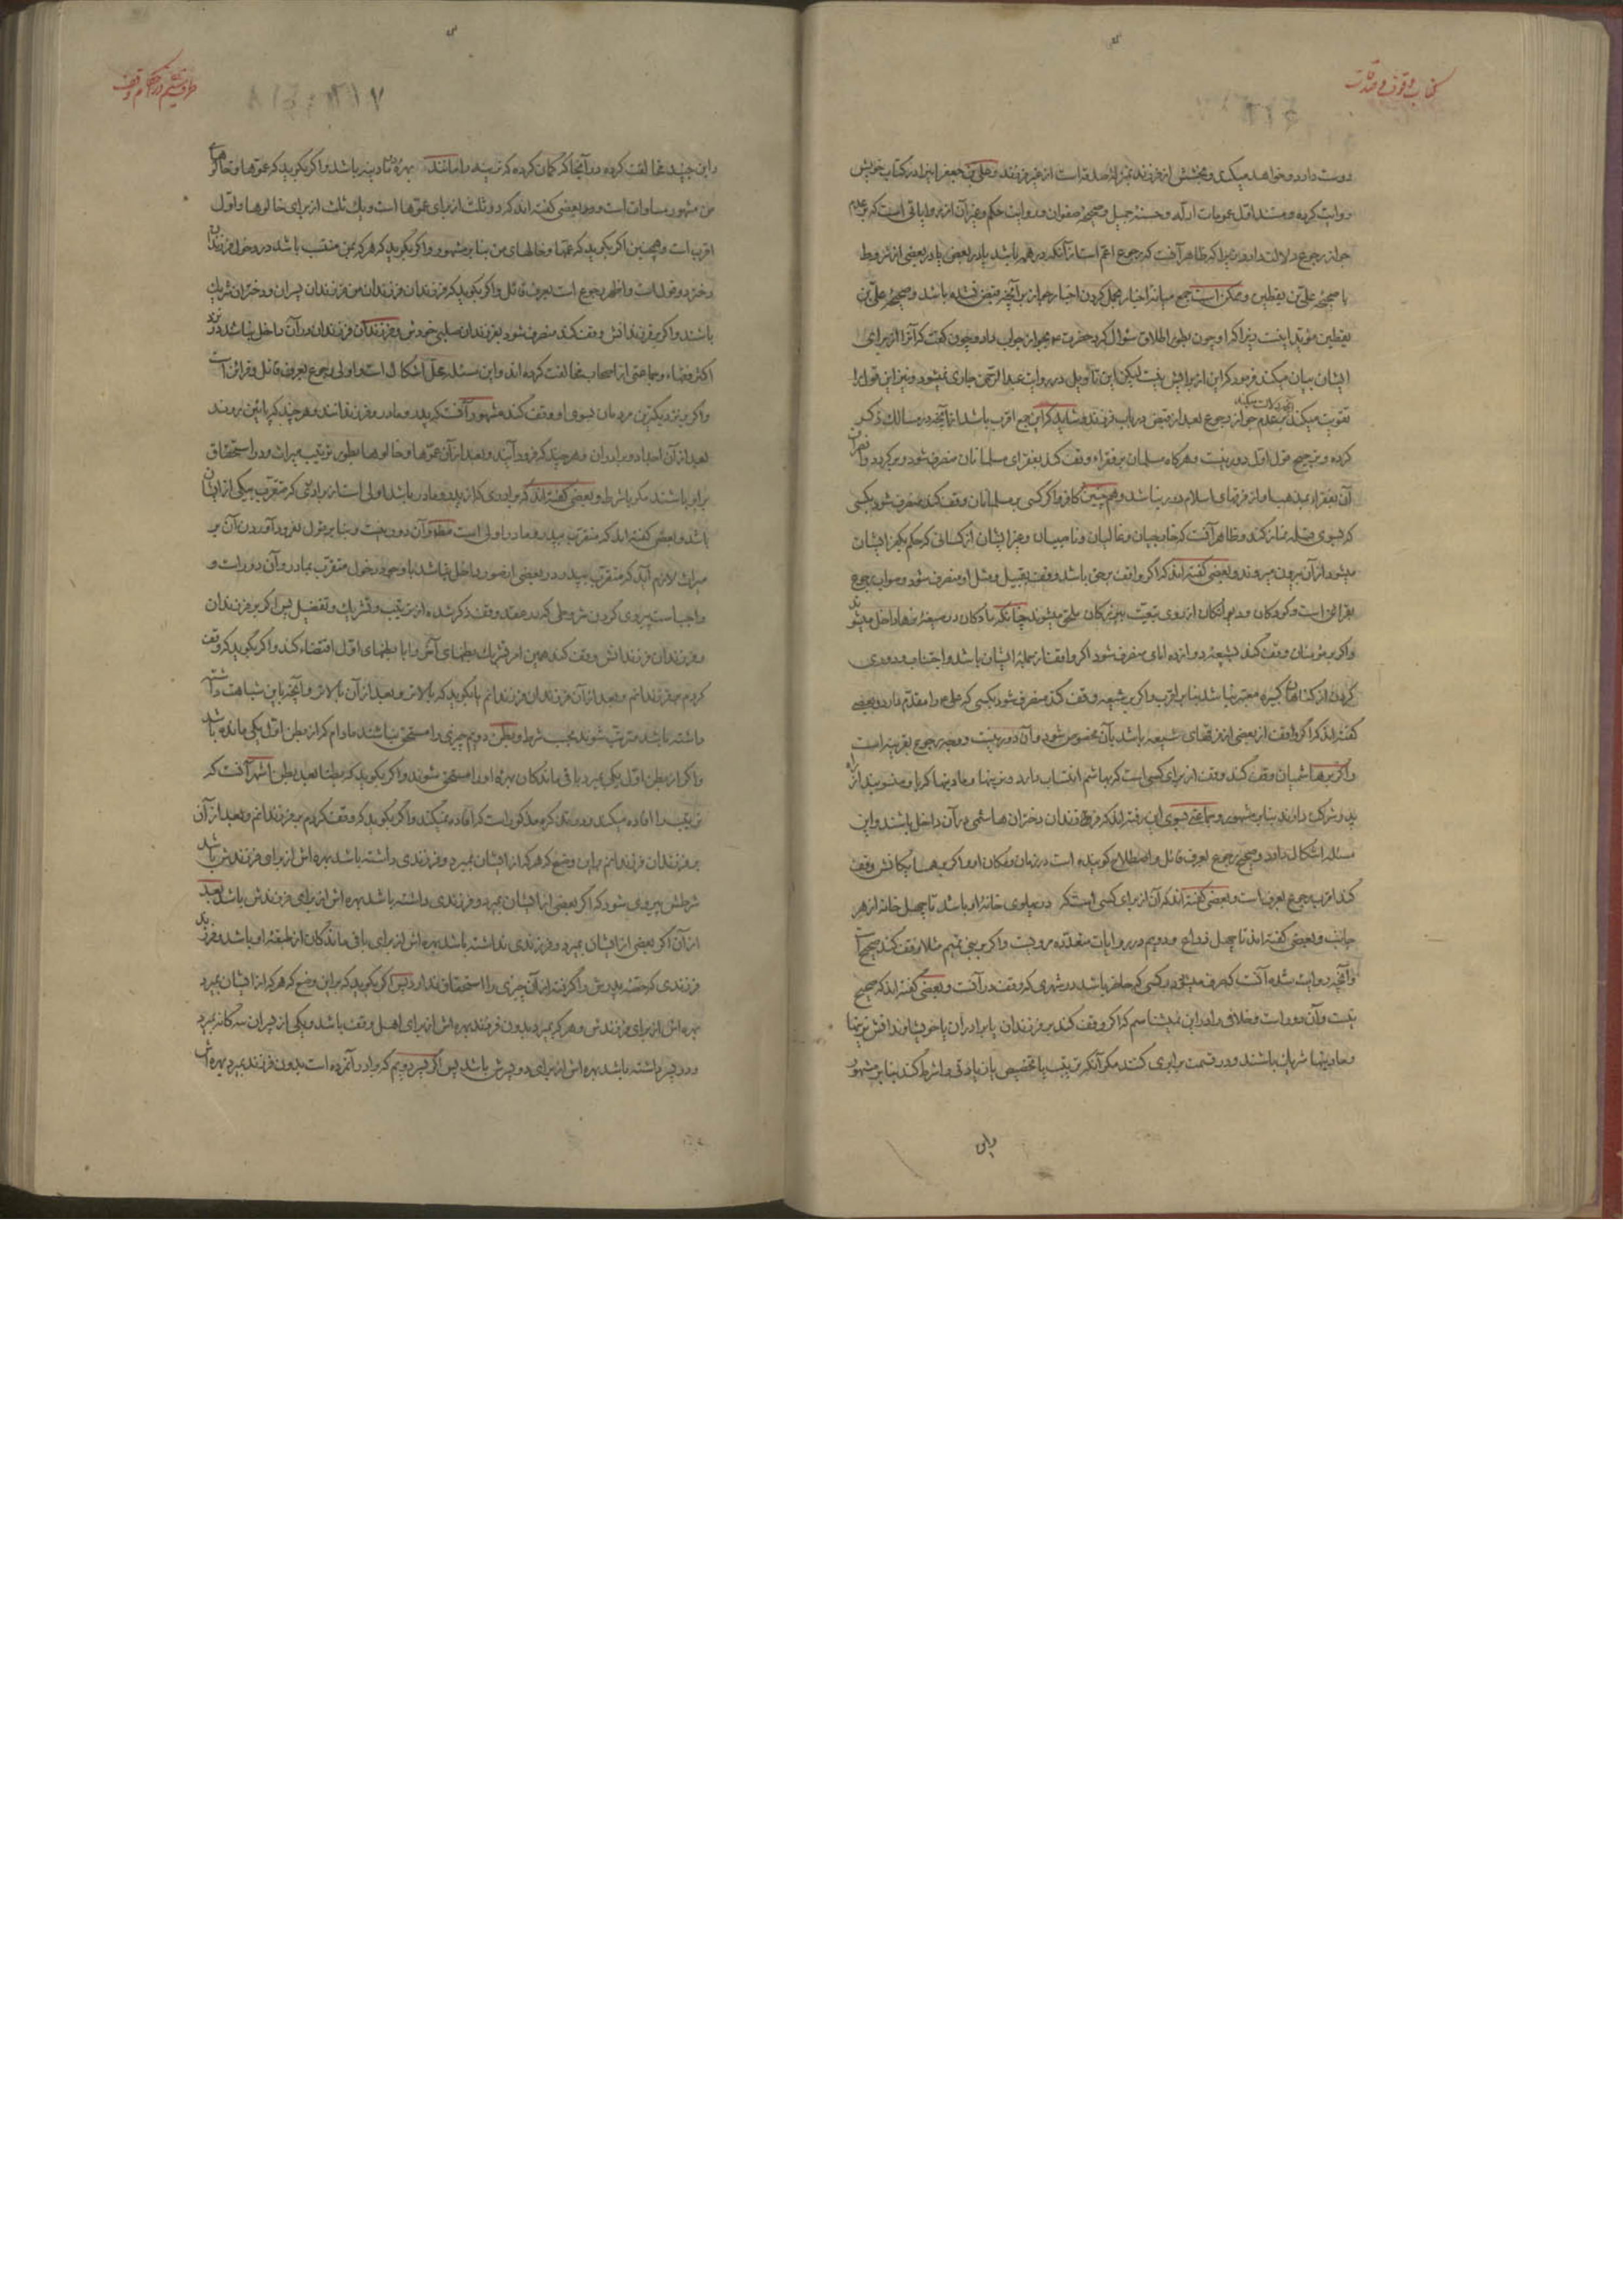 کتاب وقوف و صدقات
دوست دارد و خواهد میکند و بخشش از فرزند بمنزله صدقه است از غیر فرزند و علی بن جعفر انیرا در کتاب خویش
روایت کرده و مستند اول عمومات ادله و حسنه جمیل و صحیحه صفوان و روایت حکم و غیر آن از روایاتی است که بر عدم
جواز رجوع دلالت دارد زیرا که ظاهر آنست که رجوع اعم است از آنکه در همه باشد یا در بعضی یا در بعضی از شروط
با صحیحه علی بن یقطین و ممکن است جمع میانه اخبار بحمل کردن اخبار جواز بر آنچه قبض نشده باشد و صحیحه علی بن
یقطین مؤید اینست زیرا که او چون بطور اطلاق سؤال کرد حضرت بجواز جواب داد و چون گفت که آنرا از برای
ایشان بیان میکند فرمود که این از برایش نیست لیکن این تأویل در روایت عبدالرحمن جاری نمیشود و نیز این قول را
تقویت میکند بر عدم جواز رجوع بعد از قبض در باب فرزند و شاید که این جمع اقرب باشد از آنچه در مسالک ذکر
کرده و ترجیح قول اول دور نیست و هرگاه مسلمان بر فقراء وقف کند بفقرای مسلمانان منصرف شود و برگردد
آن بفقراء مذهب او از فرقهای اسلام دور نباشد و هم چنین کافر و اگر کسی بر مسلمانان وقف کند منصرف شود بکسی
که بسوی قبله نماز کند و ظاهر آنست که خارجیان و غالیان و ناصبیان و غیر ایشان از کسانی که حکم بکفر ایشان
میشود از آن بیرون میروند و بعضی گفته اند که اگر واقف بر حق باشد وقف بقبیل و مثل او منصرف شود و صواب رجوع
بقرائن است و کودکان و دیوانگان از روی تبعیت بمردکان ملحق میشوند چنانکه زنان در صیغه مردها داخل میشوند
و اگر بر مؤمنان وقف کند بشیعه دوازده امامی منصرف شود اگر واقف از جمله ایشان باشد و اجتناب و دوری
کردن از گناهان کبیره معتبر نباشد بنا بر اقرب و اگر بر شیعه وقف کند منصرف شود بکسی که علی را مقدم دارد و بعضی
گفته اند که اگر واقف از بعضی از فرقهای شیعه باشد بآن مخصوص شود و آن دور نیست و وجه رجوع بقرینه است
و اگر بر هاشمیان وقف کند وقف از برای کسی است که بهاشم انتساب دارد و نرینها و مادینها که با و منسوبند از راه
پدر شرکت دارند بنا بر مشهور و جماعتی بسوی این رفته اند که فرزندان دختران هاشمی در آن داخل باشند و این
مسئله اشکال دارد و صحیح رجوع بعرف قائل و اصطلاح گوینده است در زمان و مکان او و اگر بر همسایگانش وقف
کند اقرب رجوع بعرف است و بعضی گفته اند که آن از برای کسی است که در پهلوی خانه او باشد تا چهل خانه از هر
جانب و بعضی گفته اند تا چهل ذراع و دویم در روایات متعدده مرویست و اگر بر بنی تمیم مثلا وقف کند صحیح است
و آنچه روایت شده آنست که صرف میشود بر کسی که حاضر باشد در شهری که وقف در آنست و بعضی گفته اند که صحیح
نیست و آن دور است و خلافی را در این نمیشناسم که اگر وقف کند بر فرزندان یا برادران یا خویشاوندانش نرینها
و مادینها شریک باشند و در قسمت برابری کنند مگر آنکه ترتیب یا تخصیص یا زیادتی را شرط کند بنا بر مشهور
و ابن
در احکام وقف
و ابن جنید مخالفت کرده در آنجا که گمان کرده که نرینه را مانند بهره دو مادینه باشد و اگر بگوید که عموها و خالوهای
من مشهور مساوات است و بعضی گفته اند که دو ثلث از برای عموها است و یک ثلث از برای خالوها و اول
اقرب است و همچنین اگر بگوید که عمتها و خالهای من بنا بر مشهور و اگر بگوید که هر که بمن منتسب باشد در دخول فرزندان
دختر دو قول است و اظهر رجوع است بعرف قائل و اگر بگوید که فرزندان فرزندان من فرزندان پسران و دختران شریک
باشند و اگر بفرزندانش وقف کند منصرف شود بفرزندان صلبی خودش و فرزندان فرزندان در آن داخل نباشند نزد
اکثر فقهاء و جماعتی از اصحاب مخالفت کرده اند و این مسئله محل اشکال است و اولی رجوع بعرف قائل و قرائن است
و اگر بر نزدیکترین مردمان بسوی او وقف کند مشهور آنست که پدر و مادر و فرزندانند هر چند که پائین بروند
بعد از آن اجداد و برادران هر چند که فرود آیند و بعد از آن عموها و خالوها بطور ترتیب میراث و در استحقاق
برابر باشند مگر با شرط و بعضی گفته اند که برادری که از پدر و مادر باشد اولی است از برادری که متقرب بیکی از ایشان
باشد و بعضی گفته اند که متقرب بپدر و مادر اولی است مطلقا و آن دور نیست و بنا بر قول بفرود آوردن آن بر
میراث لازم آید که متقرب بپدر در بعضی از صور داخل نباشد با وجود دخول متقرب بمادر و آن دور است و
واجب است پیروی کردن شروطی که در عقد وقف ذکر شده از ترتیب و تشریک و تفضیل پس اگر بر فرزندان
و فرزندان فرزندانش وقف کند همین امر تشریک بطنهای آخر را با بطنهای اول اقتضاء کند و اگر بگوید که وقف
کردم بر فرزندانم و بعد از آن فرزندان فرزندانم یا بگوید که بالاتر و بعد از آن بالاتر و آنچه باین شباهت داشته
داشته باشد مترتب شوند بحسب شرط و بطن دویم چیزی را مستحق نباشند مادام که از بطن اول یکی مانده باشد
و اگر از بطن اول یکی بمیرد باقی ماندگان بهره او را مستحق شوند و اگر بگوید که بطنا بعد بطن اشهر آنست که
ترتیب را افاده میکند و در تذکره مذکور است که افاده نمیکند و اگر بگوید که وقف کردم بر فرزندانم و بعد از آن
بر فرزندان فرزندانم براین وضع که هر که از ایشان بمیرد و فرزندی داشته باشد بهره اش از برای فرزندش باشد
شرطش پیروی شود که اگر بعضی از ایشان بمیرد و فرزندی داشته باشد بهره اش از برای فرزندش باشد بعد
از آن اگر بعضی از ایشان بمیرد و فرزندی نداشته باشد بهره اش از برای باقی ماندگان از طبقه او باشد و فرزند
فرزندی که حصه پدرش را گرفته از آن چیزی را استحقاق ندارد پس اگر بگوید که براین وضع که هر که از ایشان بمیرد
بهره اش از برای فرزندش و هر که بمیرد بدون فرزند بهره اش از برای اهل وقف باشد و یکی از پسران سه گانه بمیرد
و دو پسر داشته باشد بهره اش از برای دو پسرش باشد پس اگر پسر دویم که برادر آنمرده است بدون فرزند بمیرد بهره اش